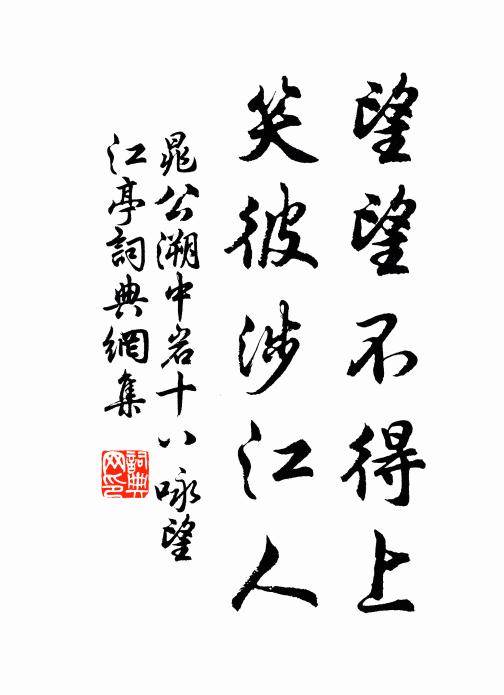 望望不得上
笑彼涉江人
晁公溯中岩十八咏望
江亭詞典網集
詞典
网印